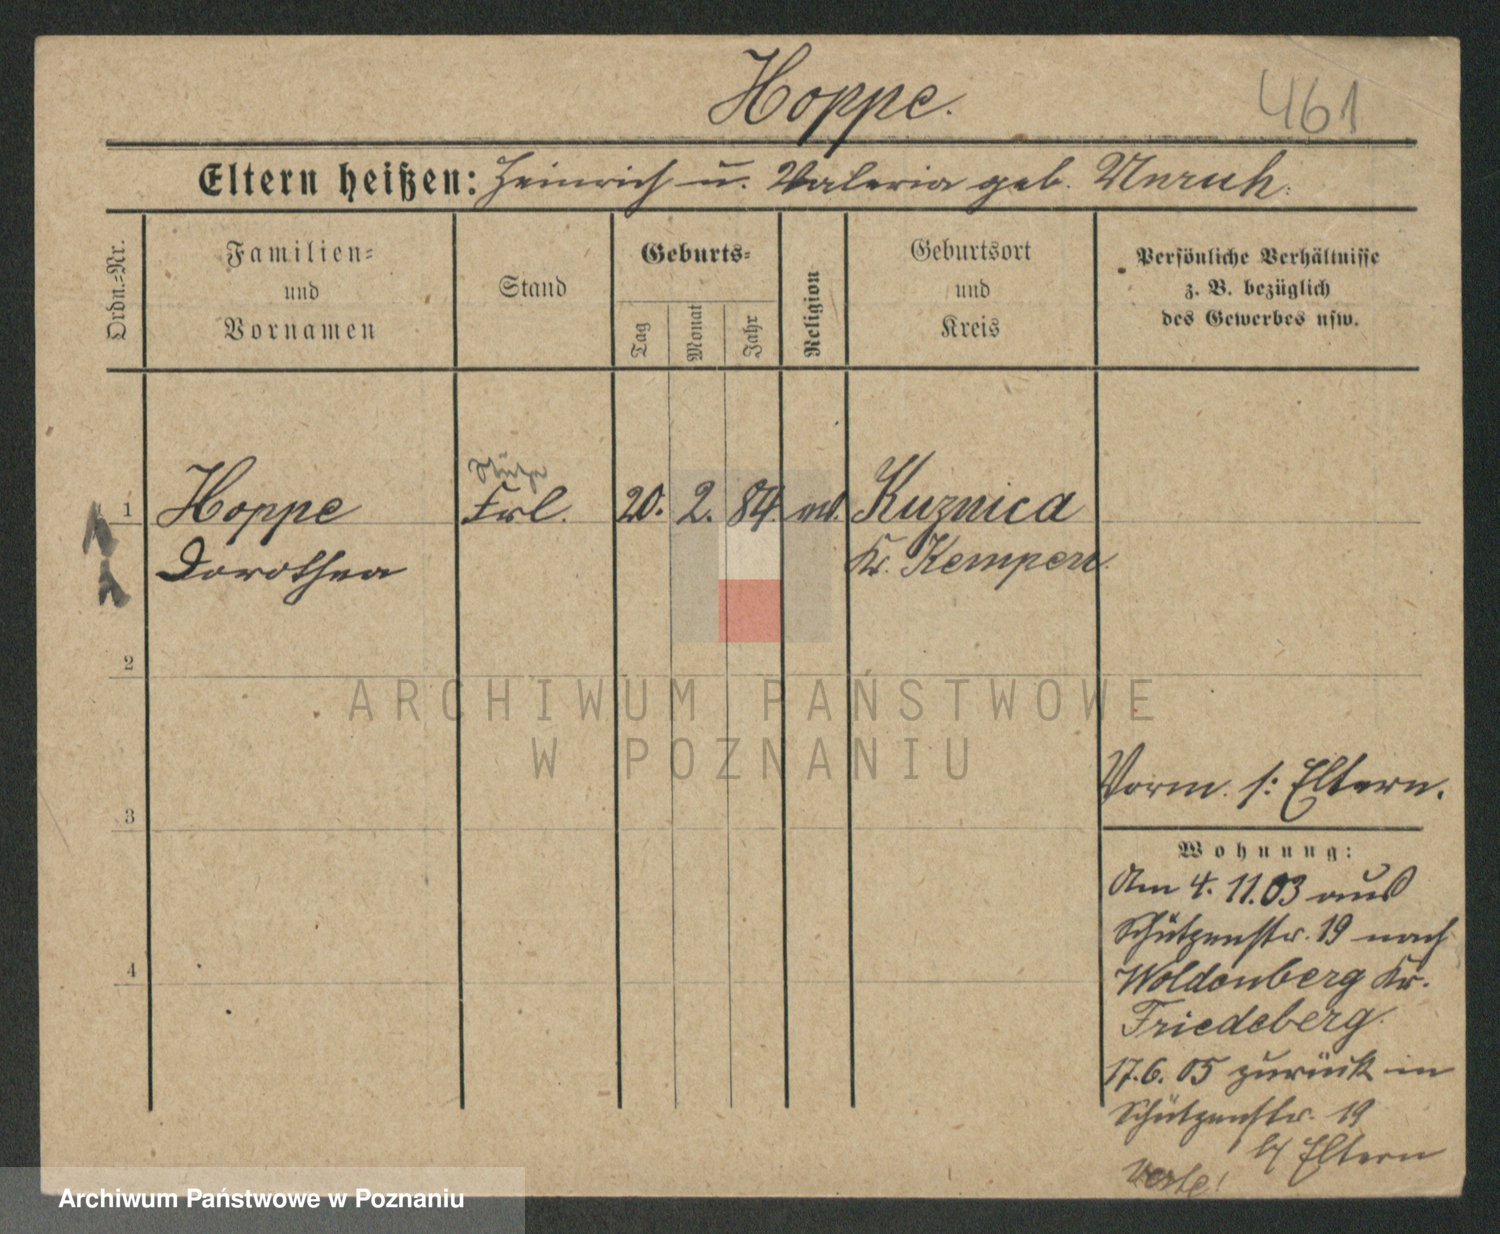 Hoppe.
461
Eltern heißen: Heinrich u. Valeria geb. Unruh.
Ordn.-Nr.
Familien-
und
Vornamen
Stand
Geburts-
Tag
Monat
Jahr
Religion
Geburtsort
und
Kreis
Persönliche Verhältnisse
z. B. bezüglich
des Gewerbes usw.
Stütze
1 Hoppe Frl. 20. 2. 84. Kuznica
Dorothea Kr. Kempen.
2
3
4
Vorm. s: Eltern.
Wohnung:
Am 4. 11. 03 aus
Schützenstr. 19 nach
Woldenberg Kr.
Friedeberg.
17. 6. 05 zurück in
Schützenstr. 19
b/ Eltern
ARCHIWUM PAŃSTWOWE
W POZNANIU
Archiwum Państwowe w Poznaniu